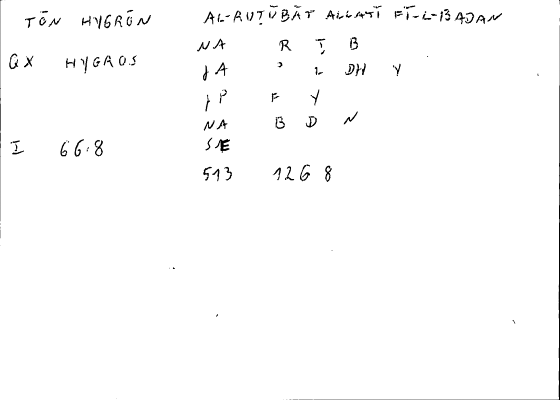 TŌN HYGRŌN AL-RUṬŪBĀT ALLATĪ FĪ-L-BADAN
NA R Ṭ B
QX HYGROS
JA ʾ L DH Y
JP F Y
NA B D N
I 66.8
SNE
513 1268